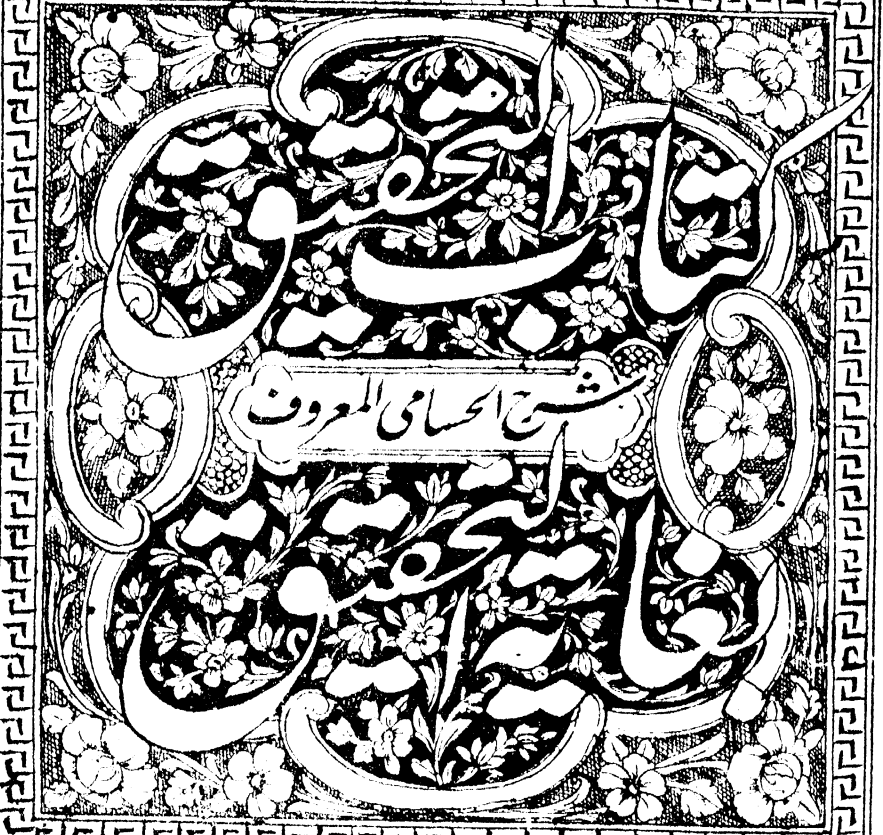 كتاب التحقيق
شرح الحسامى المعروف
بغاية التحقيق